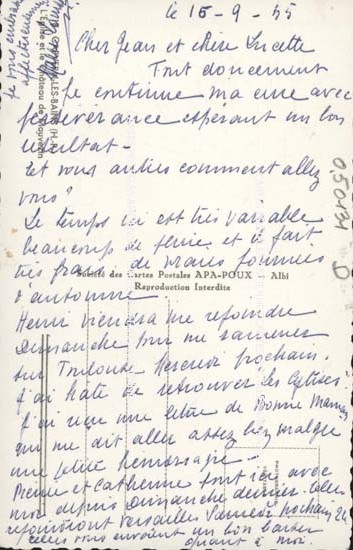 le 15-9-55
Cher Jean et chère Lucette
Tout doucement
je continue ma cure avec
persévérance espérant un bon
résultat -
Et vous autres comment allez
vous ?
Le temps ici est très variable
beaucoup de pluie et il fait
très frais de vraies journées
d'automne.
Société des Cartes Postales APA-POUX - Albi
Reproduction Interdite
Henri viendra me rejoindre
Dimanche pour me ramener
sur Toulouse Mercredi prochain.
J'ai hâte de retrouver les
J'ai reçu une lettre de Bonne Maman
qui me dit aller assez bien malgré
une petite hémorragie -
Pierre et Catherine sont ici avec
moi depuis Dimanche dernier. Elles
rejoindront Versailles Samedi prochain 24
elles vous envoient un bon baiser
quant à moi.
je vous embrasse
affectueusement
L'Église et le